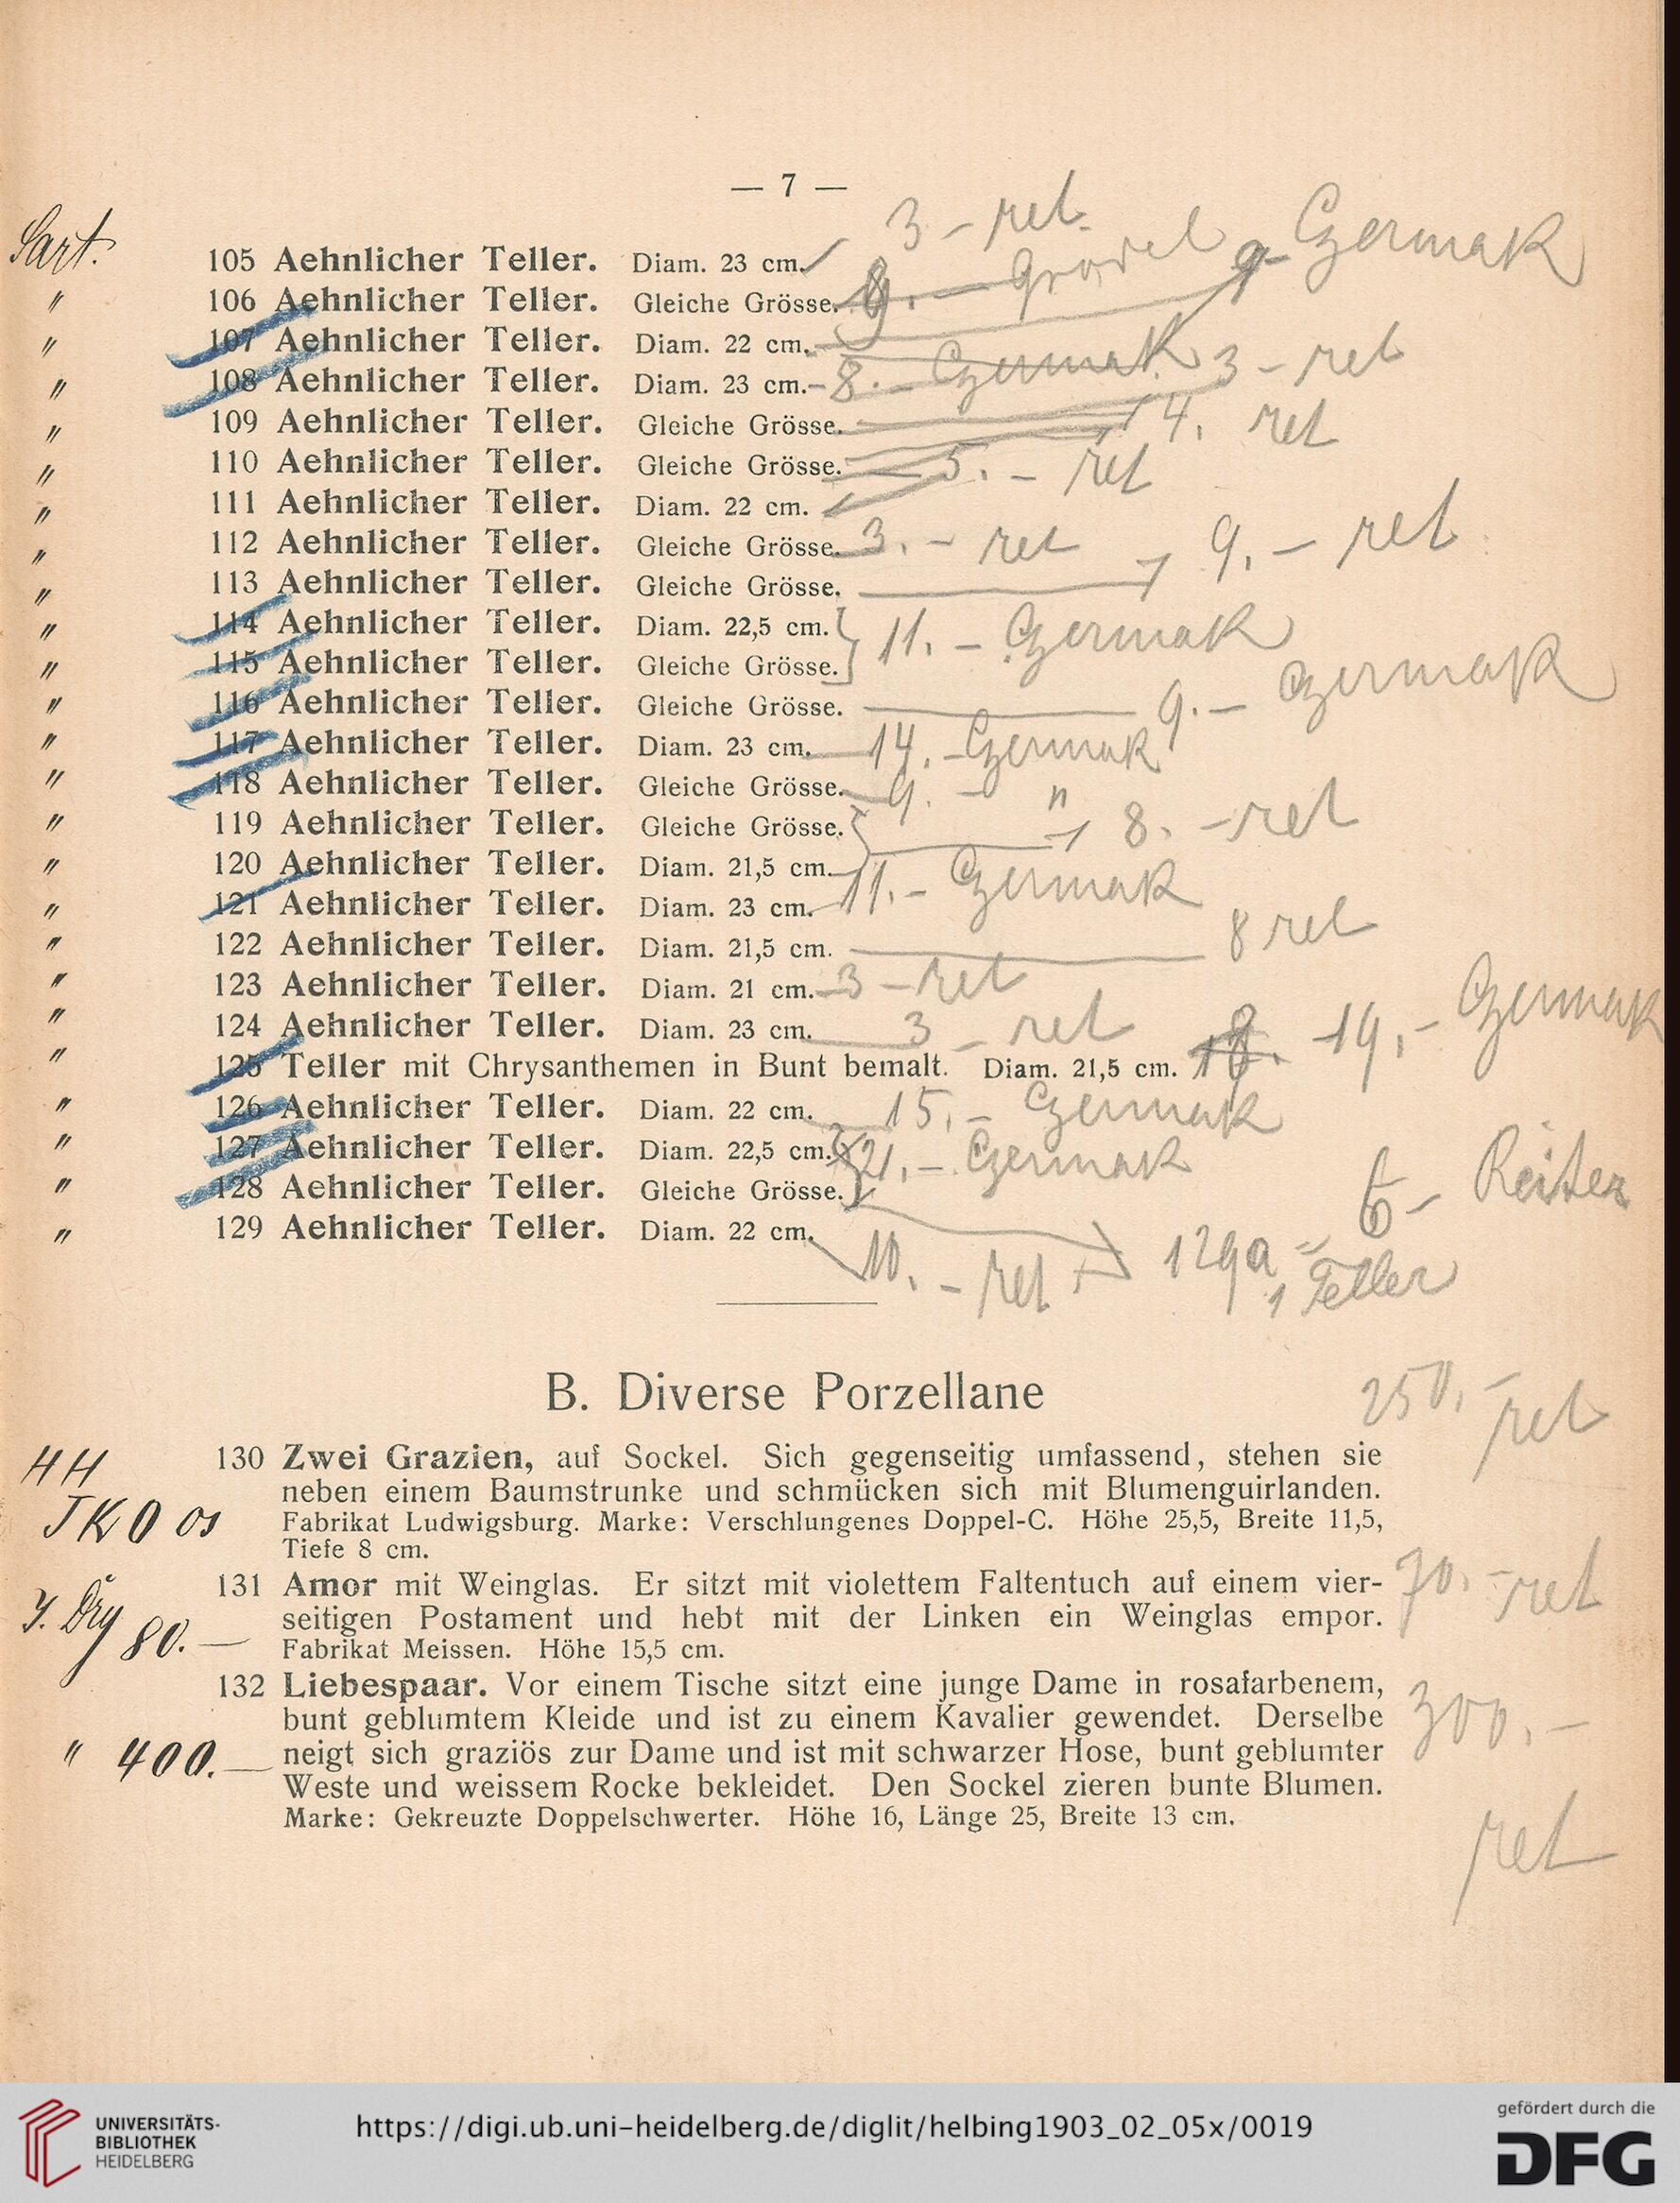 — 7 —
3 - ret.
Sart.
105 Aehnlicher Teller. Diam. 23 cm.
9 - Czermak
" 106 Aehnlicher Teller. Gleiche Grösse.
" 107 Aehnlicher Teller. Diam. 22 cm.
" 108 Aehnlicher Teller. Diam. 23 cm. - 8. - Czermak 3 - ret
" 109 Aehnlicher Teller. Gleiche Grösse. 4. ret
" 110 Aehnlicher Teller. Gleiche Grösse. 5. - ret
" 111 Aehnlicher Teller. Diam. 22 cm.
" 112 Aehnlicher Teller. Gleiche Grösse. 3. - ret
" 113 Aehnlicher Teller. Gleiche Grösse. 9. - ret
" 114 Aehnlicher Teller. Diam. 22,5 cm. 11. - Czermak
" 115 Aehnlicher Teller. Gleiche Grösse.
" 116 Aehnlicher Teller. Gleiche Grösse. 9. - Czermak
" 117 Aehnlicher Teller. Diam. 23 cm. 14. - Czermak
" 118 Aehnlicher Teller. Gleiche Grösse. 9. - "
" 119 Aehnlicher Teller. Gleiche Grösse. 8. - ret
" 120 Aehnlicher Teller. Diam. 21,5 cm.
" 121 Aehnlicher Teller. Diam. 23 cm. 11. - Czermak
" 122 Aehnlicher Teller. Diam. 21,5 cm. 8 ret
" 123 Aehnlicher Teller. Diam. 21 cm. 3 - ret
" 124 Aehnlicher Teller. Diam. 23 cm. 3 - ret
" 125 Teller mit Chrysanthemen in Bunt bemalt. Diam. 21,5 cm. 19. - Czermak
" 126 Aehnlicher Teller. Diam. 22 cm. 15. - Czermak
" 127 Aehnlicher Teller. Diam. 22,5 cm. 21. - Czermak
" 128 Aehnlicher Teller. Gleiche Grösse. 6 - Reiter
" 129 Aehnlicher Teller. Diam. 22 cm. 10. - ret 129a = 1 Teller
B. Diverse Porzellane
250. - ret
HH
130 Zwei Grazien, auf Sockel. Sich gegenseitig umfassend, stehen sie
neben einem Baumstrunke und schmücken sich mit Blumenguirlanden.
Fabrikat Ludwigsburg. Marke: Verschlungenes Doppel-C. Höhe 25,5, Breite 11,5,
Tiefe 8 cm.
131 Amor mit Weinglas. Er sitzt mit violettem Faltentuch auf einem vier- 70. - ret
seitigen Postament und hebt mit der Linken ein Weinglas empor.
80. — Fabrikat Meissen. Höhe 15,5 cm.
132 Liebespaar. Vor einem Tische sitzt eine junge Dame in rosafarbenem,
bunt geblumtem Kleide und ist zu einem Kavalier gewendet. Derselbe 300. -
" 400. — neigt sich graziös zur Dame und ist mit schwarzer Hose, bunt geblumter
Weste und weissem Rocke bekleidet. Den Sockel zieren bunte Blumen.
Marke: Gekreuzte Doppelschwerter. Höhe 16, Länge 25, Breite 13 cm.
ret
UNIVERSITÄTS-
BIBLIOTHEK
HEIDELBERG
https://digi.ub.uni-heidelberg.de/diglit/helbing1903_02_05x/0019
gefördert durch die
DFG